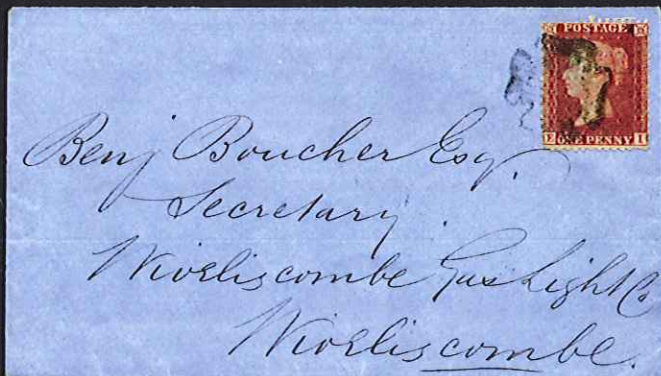 POSTAGE
E ONE PENNY I
Benj Boucher Esq.
Secretary.
Wiveliscombe Gas Light Co
Wiveliscombe.